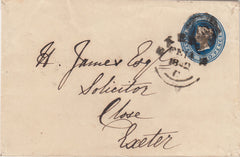 H. James Esq
Solicitor
Close
Exeter